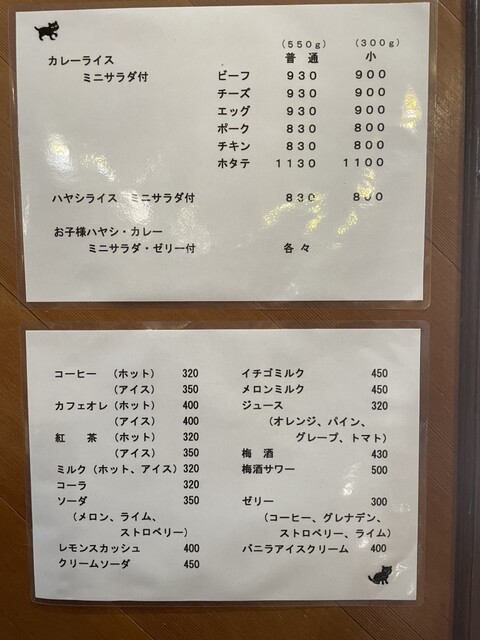 （550ｇ）　（300ｇ）
カレーライス　普　通　小
ミニサラダ付　ビーフ　930　900
チーズ　930　900
エッグ　930　900
ポーク　830　800
チキン　830　800
ホタテ　1130　1100
ハヤシライス　ミニサラダ付　830　800
お子様ハヤシ・カレー
ミニサラダ・ゼリー付　各々
コーヒー　（ホット）　320
（アイス）　350
カフェオレ（ホット）　400
（アイス）　400
紅　茶　（ホット）　320
（アイス）　350
ミルク（ホット、アイス）320
コーラ　320
ソーダ　350
（メロン、ライム、
ストロベリー）
レモンスカッシュ　400
クリームソーダ　450
イチゴミルク　450
メロンミルク　450
ジュース　320
（オレンジ、パイン、
グレープ、トマト）
梅　酒　430
梅酒サワー　500
ゼリー　300
（コーヒー、グレナデン、
ストロベリー、ライム）
バニラアイスクリーム　400